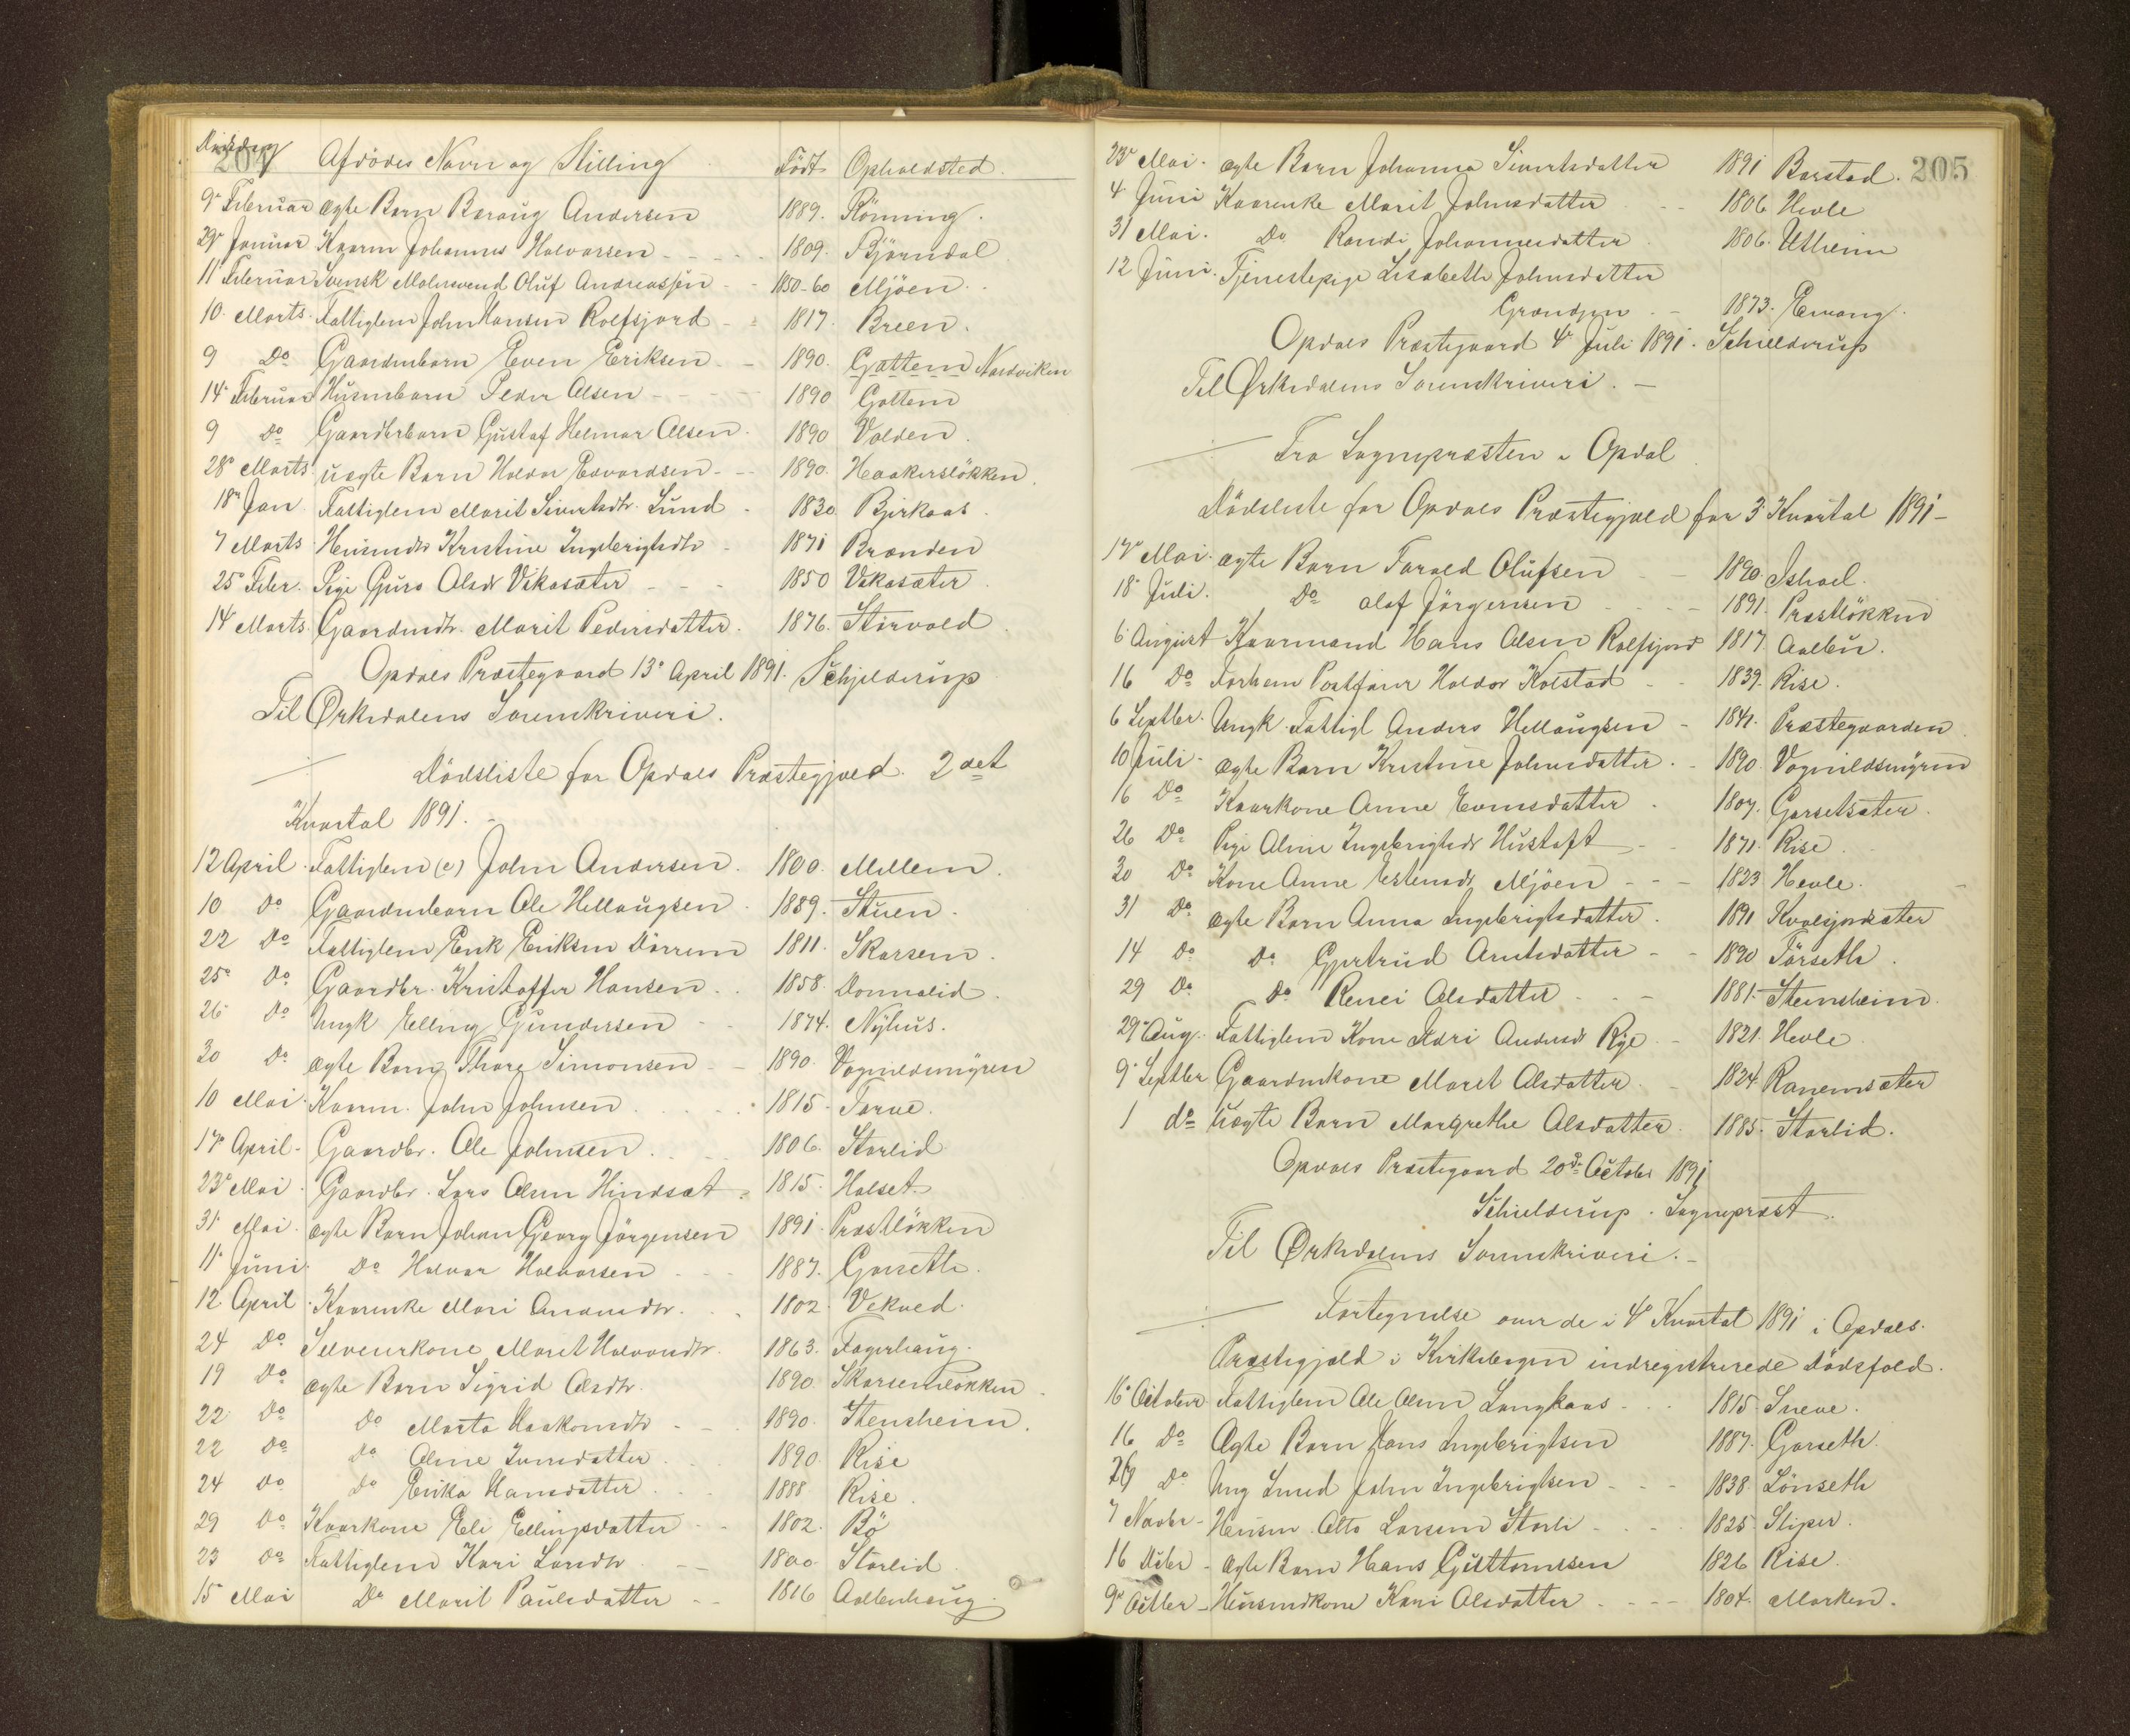 204
Dödsdag Afdödes Navn og Stilling Födt Opholdsted.
9' Februar ægte Barn Baraug Andersen 1889. Rönning.
29' Januar Kaarm Johannes Halvorsen 1809. Björndal
11' Februar Svensk Malersvend Oluf Andreassen 1850-60 Mjöen.
10. Marts. Fattiglem John Hansen Rolfsjord 1817. Breen.
9 Do Gaardmbarn Even Eriksen 1890. Gottem Nordviken
14' Februar Husmbarn Peder Olsen 1890 Gottem
9 Do Gaardbrbarn Gustaf Helmar Olsen. 1890 Volden.
28' Marts uægte Barn Haldor Edvardsen 1890. Haakersløkken.
18' Jan. Fattiglem Marit Sivertsdtr. Lund 1830 Bjerkaas.
7 Marts Husmdtr Kristine Ingebrigtsdtr 1871 Brænden
25' Febr. Pige Guro Olsdr Vikasæter 1850 Vikasæter
14' Marts. Gaardmdtr. Marit Pedersdatter. 1876. Storvold
Opdals Præstegaard 13' April 1891. Schjelderup
Til Ørkedalens Sorenskriveri.
Dödsliste for Opdals Præstegjæld. 2det
Kvartal 1891.
12 April. Fattiglem (e) John Andersen. 1800. Mellem.
10 Do Gaardmbarn Ole Hellaugsen 1889. Stuen.
22 Do Fattiglem Erik Eriksen Dörrem 1811. Skarsem.
25' Do Gaardbr. Kristoffer Hansen. 1858. Donnalid.
26' Do Ungk Elling Gundersen 1874. Nÿhus.
30 Do ægte Barn Thore Simonsen 1890. Vognildmÿren
10 Mai. Kaarm. John Johnsen 1815. Torve.
17' April. Gaardbr. Ole Johnsen. 1806. Storlid
23' Mai. Gaardbr. Lars Olsen Hindsæt 1815. Halset.
31' Mai. ægte Barn Johan Georg Jörgensen 1891. Præstlökken
11' Juni. Do Halvor Halvorsen 1887. Gorseth.
12 April. Kaarenke Mari Amundsdtr. 1802. Vekved.
24 Do Selveierkone Marit Halvorsdtr. 1863. Fagerhaug.
19 Do ægte Barn Sigrid Olsdtr. 1890. Skarsemlökken.
22 Do Do Marta Haakonsdtr 1890. Stensheim.
22 Do Do Oline Ivarsdatter. 1890 Rise
24 Do Do Erika Hansdatter. 1888 Rise.
29 Do Kaarkone Eli Ellingsdatter 1802. Bö
23 Do Fattiglem Kari Larsdtr 1800. Storlid.
15' Mai Do Marit Paulsdatter 1816 Aalbuhaug.
205
23' Mai. ægte Barn Johanna Sivertsdatter 1891 Barstad.
4 Juni Kaarenke Marit Johnsdatter 1806. Hevle
31 Mai. Do Randi Johannesdatter 1806. Utheim
12 Juni. Tjenestepige Lisabeth Johnsdatter
Grændsen 1873. Emang.
Opdals Præstegaard 4' Juli 1891. Schielderup
Til Ørkedalens Sorenskriveri.
Fra Sognepræsten i Opdal
Dödsliste for Opdals Præstegjæld for 3' Kvartal 1891
17' Mai. ægte Barn Torald Olufsen 1890. Ishoel.
18' Juli. Do Olaf Jörgensen 1891. Præstlökken
6' August Kaarmand Hans Olsen Rolfsjord 1817. Aalbu.
16 Do Forhen Postförer Haldor Kolstad 1839. Rise.
6 Septbr. Ungk. Fattigl Anders Hellaugsen 1841. Præstegaarden
10 Juli. ægte Barn Kristine Johnsdatter. 1890. Vognildsmÿren
16 Do Kaarkone Anne Evensdatter. 1807. Gorsetsæter.
26 Do Pige Oline Ingebrigtsdr Hustoft 1871. Rise.
30 Do Kone Anne Estensdr Mjöen 1823 Hevle.
31 Do ægte Barn Anna Ingebrigtsdatter. 1891 Kvalsjordsæter
14 Do Do Gjertrud Arntsdatter 1890 Förseth.
29 Do Do Renei Olsdatter 1881. Stensheim.
29' Aug. Fattiglem Kone Kari Andersdr Rÿe 1821. Hevle
9' Septbr Gaardmkone Marit Olsdatter. 1824. Ranemsæter
1 do uægte Barn Margrethe Olsdatter. 1885. Storlid.
Opdals Præstegaard 20de October 1891
Schielderup. Sognepræst.
Til Ørkedalens Sorenskriveri.
Fortegnelse over de i 4' Kvartal 1891 i Opdals
Præstegjæld i Kirkebogen indregistrerede Dödsfald.
16' October. Fattiglem Ole Olsen Langkaas 1815. Sneve.
16 Do Ægte Barn Hans Ingebrigtsen 1887. Gorseth.
26 Do Ung Smed John Ingebrigtsen 1838. Lönseth
7 Novbr. Husm. Otto Larsen Storli 1825. Sliper.
16 Debr. ægte Barn Hans Guttormsen 1826 Rise.
9' Octbr. Husmdkone Kari Olsdatter 1804. Marken.